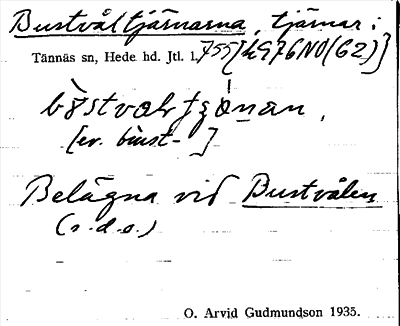 Bustvåltjärnarna, tjärnar i
Tännäs sn, Hede hd. Jtl. l. 755 [4976NO(62)]
[ev. bùust- ]
Belägna vid Bustvålen
(s.d.o.)
O. Arvid Gudmundson 1935.